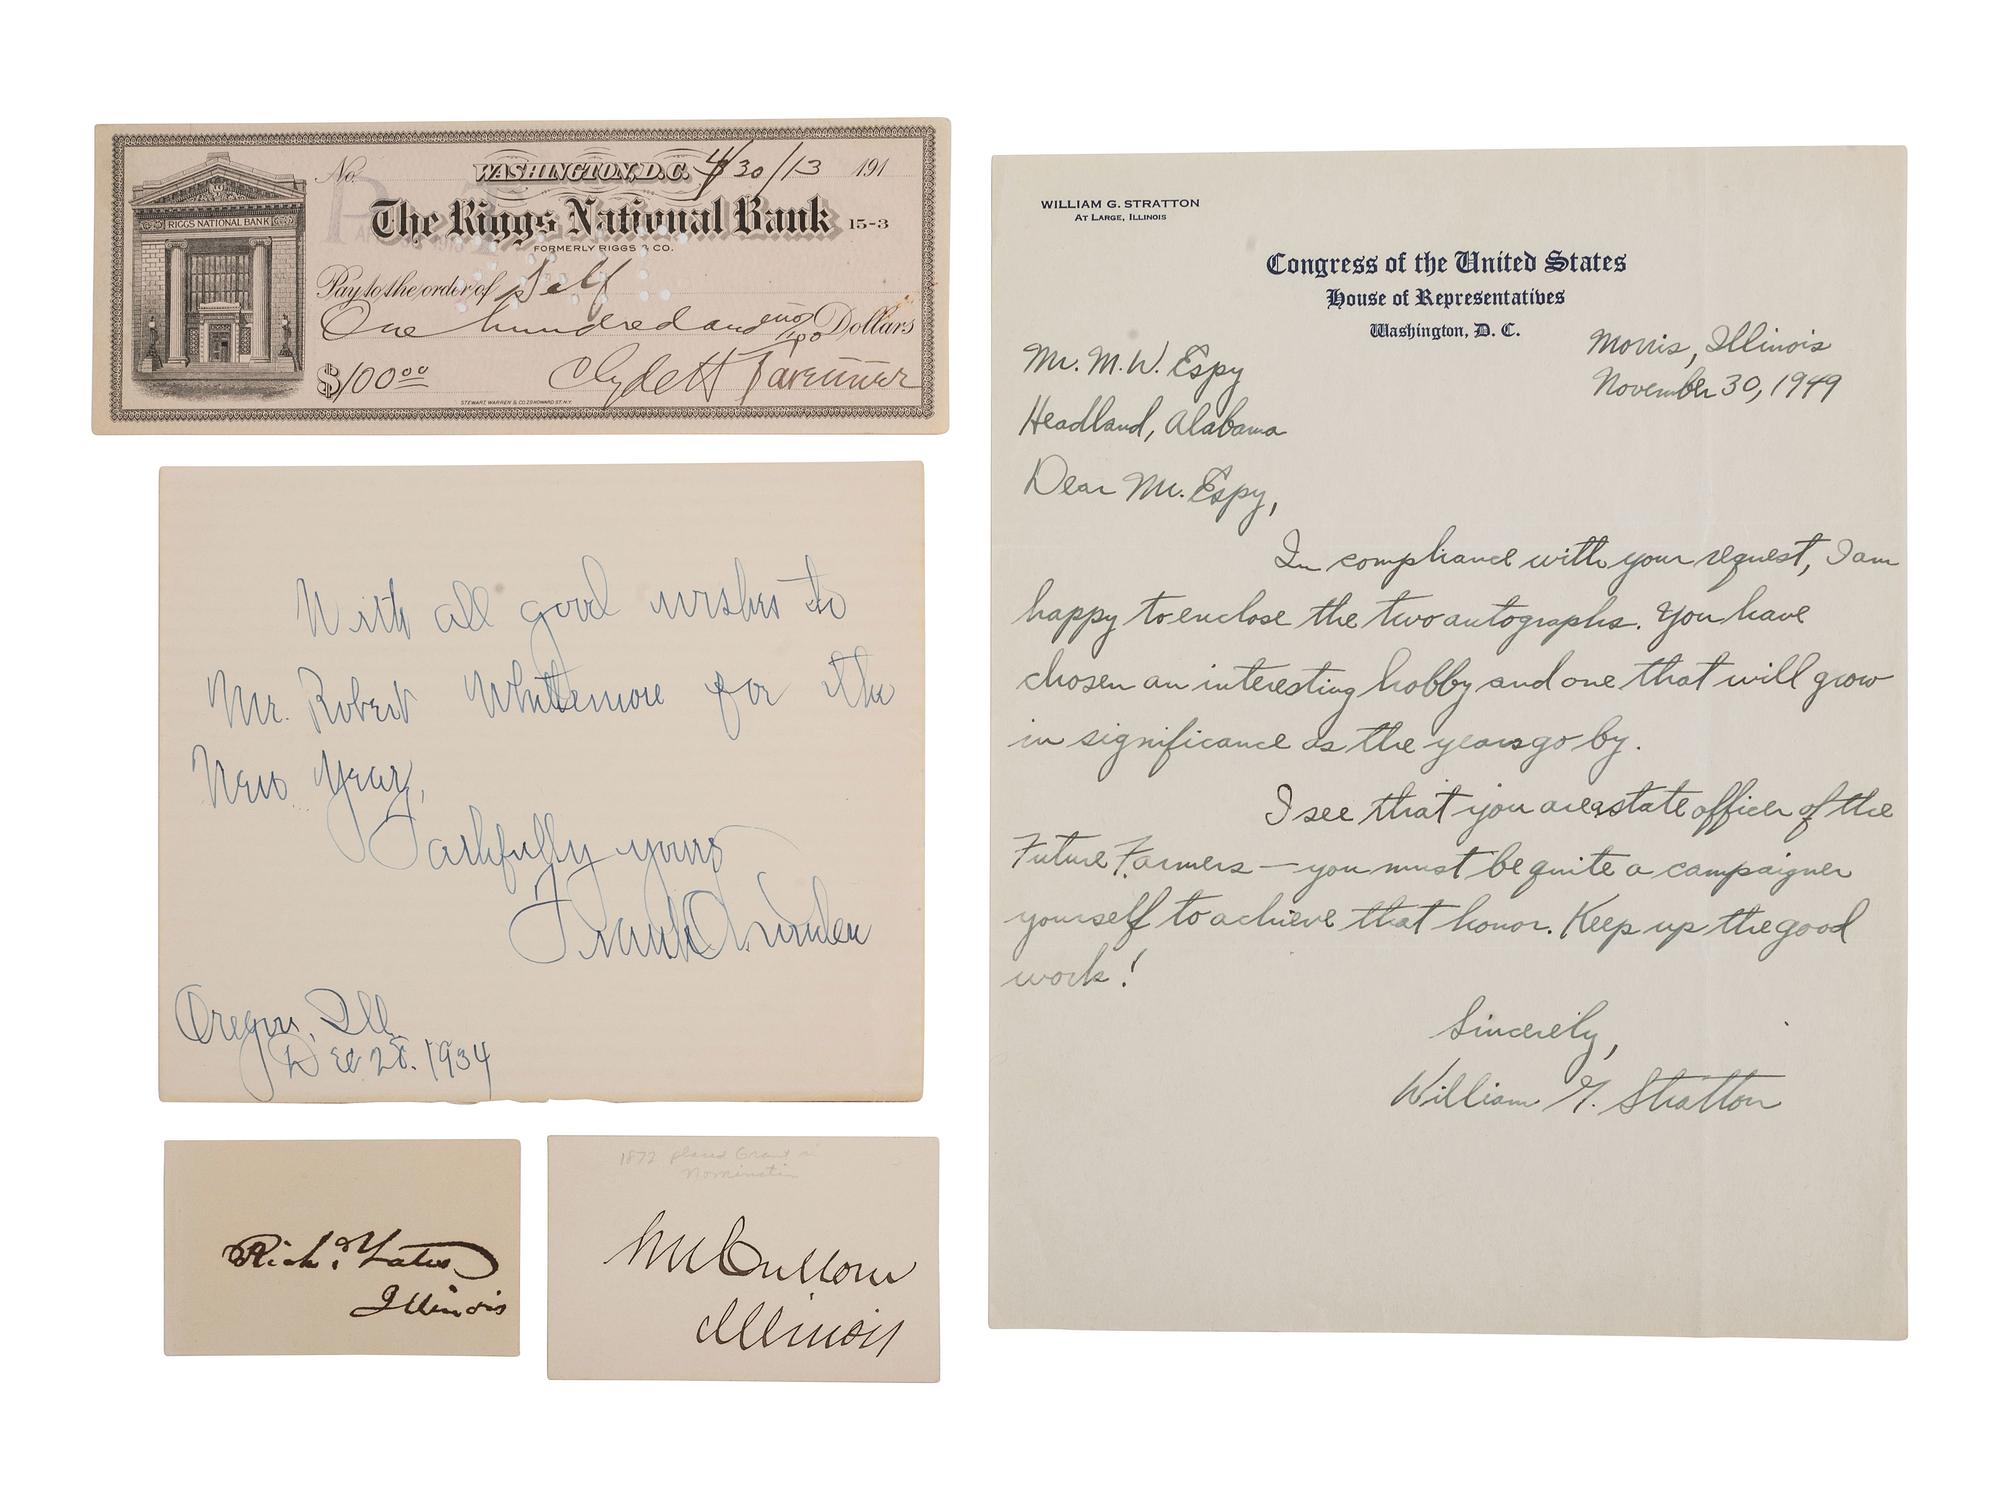 No. WASHINGTON, D.C. 4/30/13 191
The Riggs National Bank 15-3
FORMERLY RIGGS & CO.
RIGGS NATIONAL BANK
Pay to the order of Self
One hundred and no/100 Dollars
$100.00
Clyde H Tavenner
STEWART WARREN & CO. 29 HOWARD ST. N.Y.
With all good wishes to
Mr. Robert Whittemore for the
New Year,
Faithfully yours
Frank O. Lowden
Oregon, Ill.
Dec 28. 1934
Richd. Yates
Illinois
1872 placed Grant in
Nomination
SM Cullom
Illinois
WILLIAM G. STRATTON
AT LARGE, ILLINOIS
Congress of the United States
House of Representatives
Washington, D. C.
Morris, Illinois
November 30, 1949
Mr. M.W. Espy
Headland, Alabama
Dear Mr. Espy,
In compliance with your request, I am
happy to enclose the two autographs. You have
chosen an interesting hobby and one that will grow
in significance as the years go by.
I see that you are a state officer of the
Future Farmers — you must be quite a campaigner
yourself to achieve that honor. Keep up the good
work!
Sincerely,
William G. Stratton